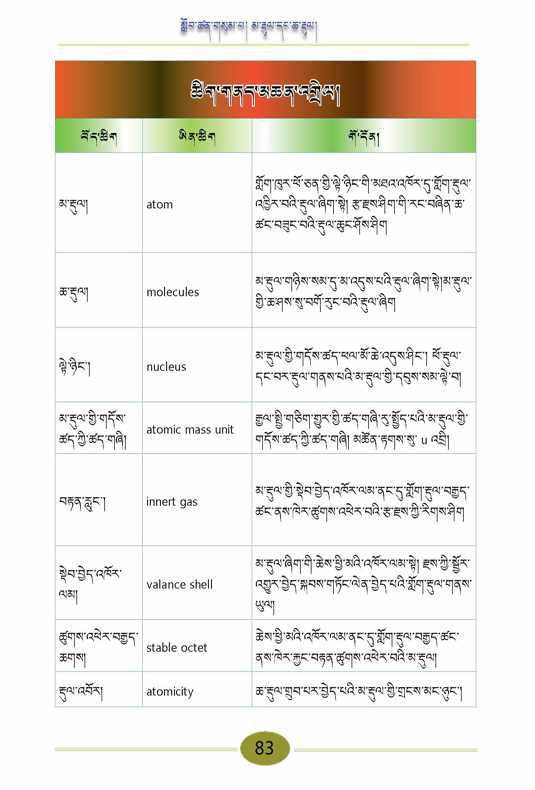 སློབ་ཚན་གསུམ་པ། མ་རྡུལ་དང་ཆ་རྡུལ།
ཚིག་གནད་མཆན་འགྲེལ།
བོད་ཚིག
ཨིན་ཚིག
གོ་དོན།
མ་རྡུལ།
atom
གློག་ཁུར་ཕོ་ཅན་གྱི་ལྟེ་ཉིང་གི་མཐའ་འཁོར་དུ་གློག་རྡུལ་
འཁྱིར་བའི་རྡུལ་ཞིག་སྟེ། རྩ་རྫས་ཤིག་གི་རང་བཞིན་ཆ་
ཚང་བཟུང་བའི་རྡུལ་ཆུང་ཤོས་ཤིག
ཆ་རྡུལ།
molecules
མ་རྡུལ་གཉིས་སམ་དུ་མ་འདུས་པའི་རྡུལ་ཞིག་སྟེ།མ་རྡུལ་
གྱི་ཆ་ཤས་སུ་བགོ་རུང་བའི་རྡུལ་ཞིག
ལྟེ་ཉིང་།
nucleus
མ་རྡུལ་གྱི་གདོས་ཚད་ཕལ་མོ་ཆེ་འདུས་ཤིང་། ཕོ་རྡུལ་
དང་བར་རྡུལ་གནས་པའི་མ་རྡུལ་གྱི་དབུས་སམ་ལྟེ་བ།
མ་རྡུལ་གྱི་གདོས་
ཚད་ཀྱི་ཚད་གཞི།
atomic mass unit
རྒྱལ་སྤྱི་གཅིག་གྱུར་གྱི་ཚད་གཞི་རུ་སྤྱོད་པའི་མ་རྡུལ་གྱི་
གདོས་ཚད་ཀྱི་ཚད་གཞི། མཚོན་རྟགས་སུ་ u འབྲི།
བརྟན་རླུང་།
innert gas
མ་རྡུལ་གྱི་སྡེབ་བྱེད་འཁོར་ལམ་ནང་དུ་གློག་རྡུལ་བརྒྱད་
ཚང་ནས་ཁེར་ཚུགས་འཕེར་བའི་རྩ་རྫས་ཀྱི་རིགས་ཤིག
སྡེབ་བྱེད་འཁོར་
ལམ།
valance shell
མ་རྡུལ་ཞིག་གི་ཆེས་ཕྱི་མའི་འཁོར་ལམ་སྟེ། རྫས་ཀྱི་སྦྱོར་
འགྱུར་བྱེད་སྐབས་གཏོང་ལེན་བྱེད་པའི་གློག་རྡུལ་གནས་
ཡུལ།
ཚུགས་འཕེར་བརྒྱད་
ཆགས།
stable octet
ཆེས་ཕྱི་མའི་འཁོར་ལམ་ནང་དུ་གློག་རྡུལ་བརྒྱད་ཚང་
ནས་ཁེར་རྐྱང་བརྟན་ཚུགས་འཕེར་བའི་མ་རྡུལ།
རྡུལ་འབོར།
atomicity
ཆ་རྡུལ་གྲུབ་པར་བྱེད་པའི་མ་རྡུལ་གྱི་གྲངས་མང་ཉུང་།
83